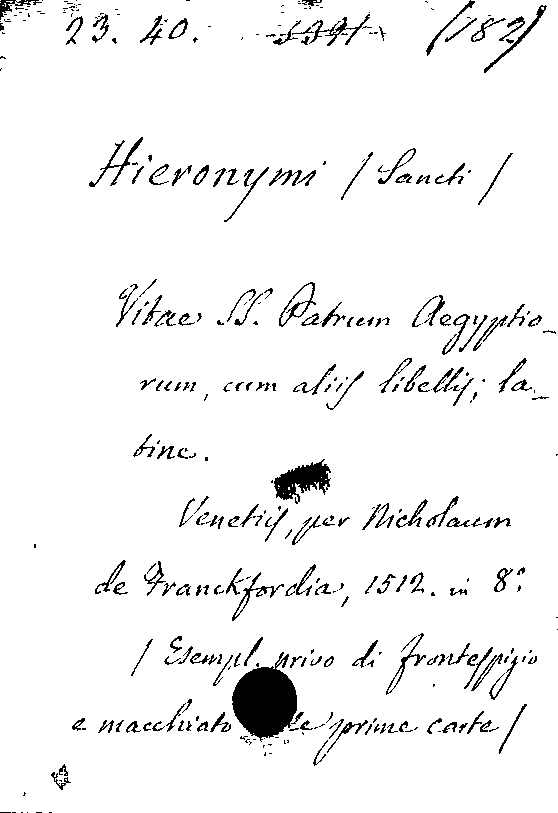 23. 40. (182)
Hieronymi / Sancti /
Vitae SS. Patrum Aegyptio-
rum, cum aliis libellis; la-
tine.
Venetiis, per Nicholaum
de Franckfordia, 1512. in 8.°
/ Esempl. privo di frontespizio
e macchiato prime carte /